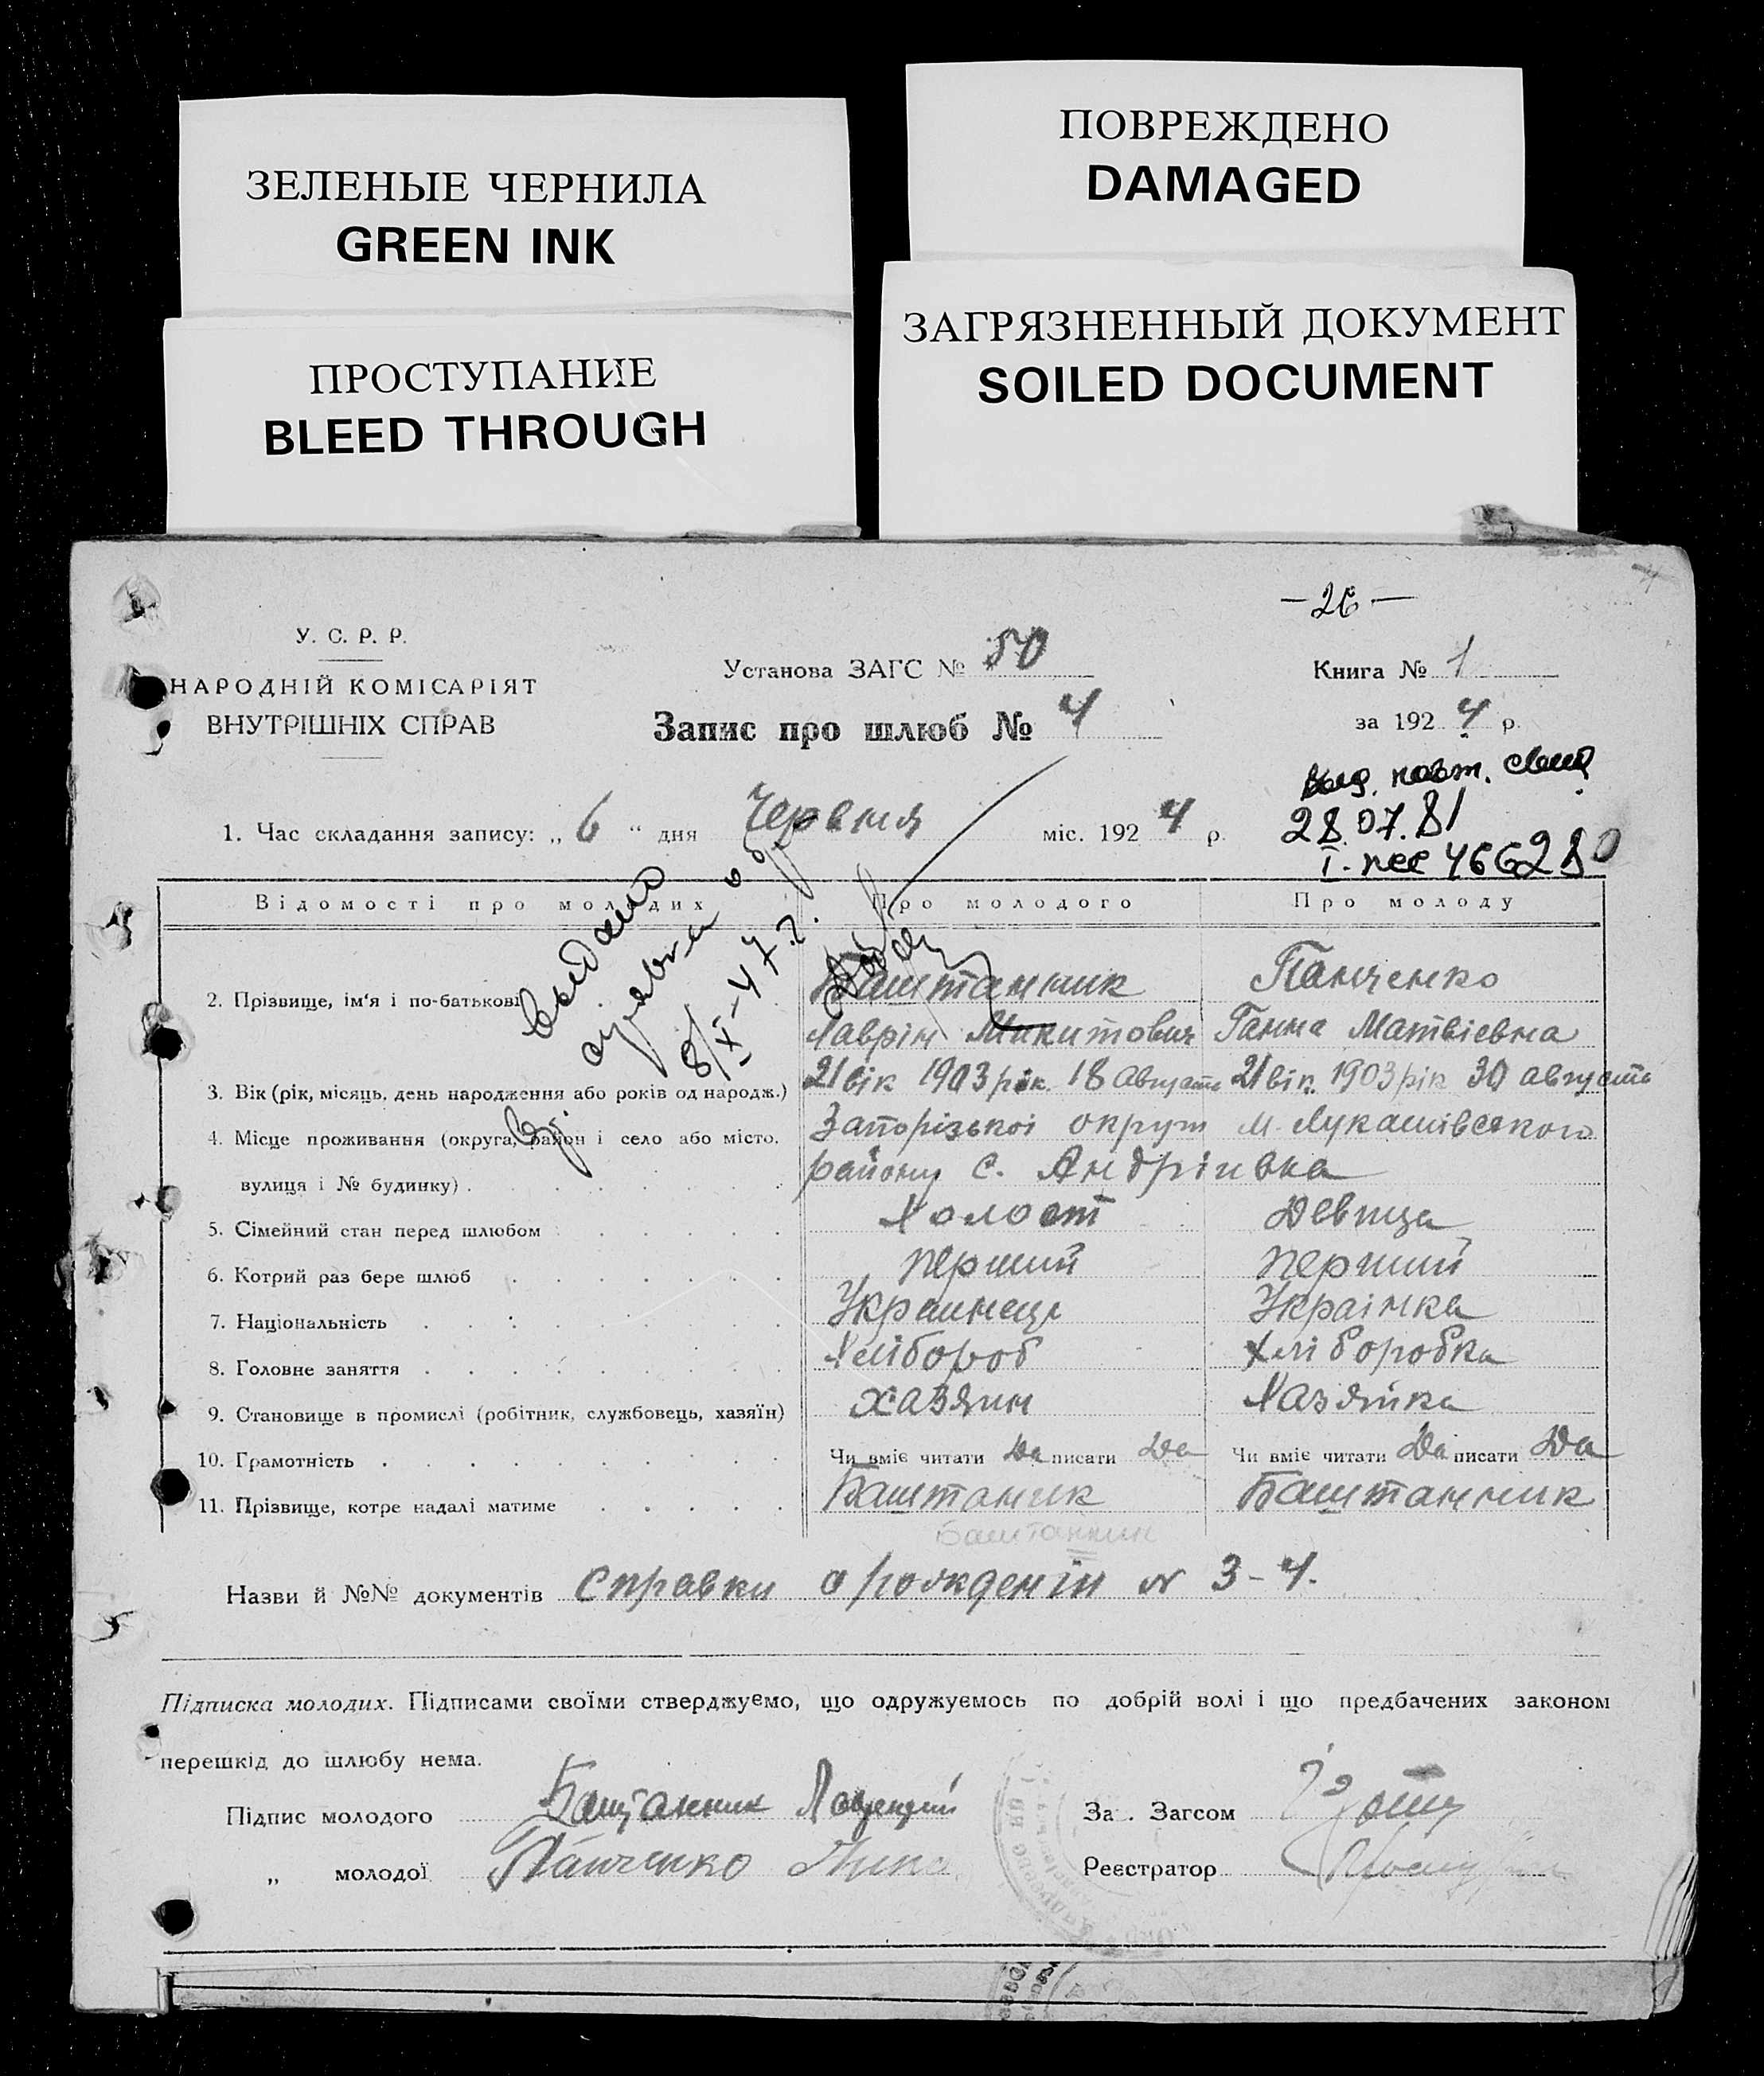 ЗЕЛЕНЫЕ ЧЕРНИЛА
GREEN INK
ПРОСТУПАНИЕ
BLEED THROUGH
ПОВРЕЖДЕНО
DAMAGED
ЗАГРЯЗНЕННЫЙ ДОКУМЕНТ
SOILED DOCUMENT
— 26 —
У. С. Р. Р.
НАРОДНІЙ КОМІСАРІЯТ
ВНУТРІШНІХ СПРАВ
Установа ЗАГС № 50
Запис про шлюб № 4
Книга № 1
за 1924 р.
Выд. повт. свид.
28.07.81
1. Час складання запису: „ 6 “ дня Червня міс. 1924 р.
выдана
справка о
8/XI-47 г.
Відомості про молодих Про молодого Про молоду
2. Прізвище, ім'я і по-батькові Баштанник Панченко
Лаврін Микитович Ганна Матвіевна
3. Вік (рік, місяць, день народження або років од народж.) 21 вік 1903 рік 18 Августа 21 вік 1903 рік 30 августа
4. Місце проживання (округа, район і село або місто, Запорізькоі округи М. Лукашівського
вулиця і № будинку) . району с. Андріівка
5. Сімейний стан перед шлюбом Холост Девица
6. Котрий раз бере шлюб перший перший
7. Національність Украинець Украінка
8. Головне заняття Хлібороб Хліборобка
9. Становище в промислі (робітник, службовець, хазяїн) хазяин Хазяйка
10. Грамотність Чи вміє читати Да писати Да Чи вміє читати Да писати Да
11. Прізвище, котре надалі матиме Баштаник Баштанник
Баштанник
Назви й №№ документів Справки о рожденіи № 3-4.
Підписка молодих. Підписами своїми стверджуємо, що одружуємось по добрій волі і що предбачених законом
перешкід до шлюбу нема.
Підпис молодого Баштанник
За . Загсом
„ молодої Панченко
Реєстратор